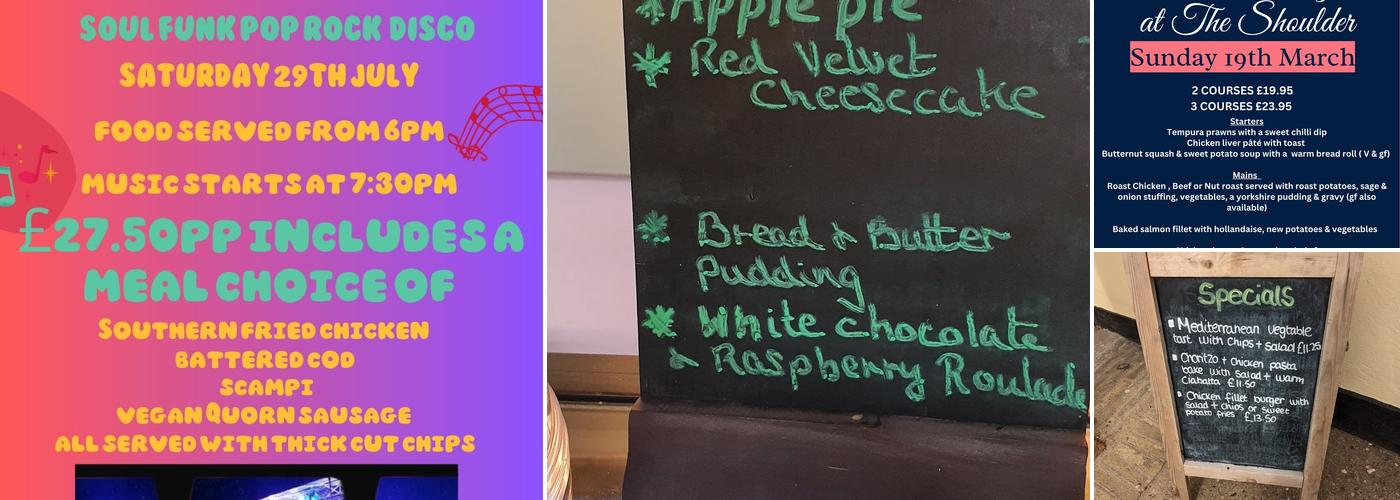 SOUL FUNK POP ROCK DISCO
SATURDAY 29TH JULY
FOOD SERVED FROM 6PM
MUSIC STARTS AT 7:30PM
£27.50PP INCLUDES A
MEAL CHOICE OF
SOUTHERN FRIED CHICKEN
BATTERED COD
SCAMPI
VEGAN QUORN SAUSAGE
ALL SERVED WITH THICK CUT CHIPS
Apple pie
Red Velvet
Cheesecake
Bread & Butter
Pudding
White chocolate
& Raspberry Roulade
at The Shoulder
Sunday 19th March
2 COURSES £19.95
3 COURSES £23.95
Starters
Tempura prawns with a sweet chilli dip
Chicken liver pâté with toast
Butternut squash & sweet potato soup with a warm bread roll ( V & gf)
Mains
Roast Chicken , Beef or Nut roast served with roast potatoes, sage &
onion stuffing, vegetables, a yorkshire pudding & gravy (gf also
available)
Baked salmon fillet with hollandaise, new potatoes & vegetables
Specials
Mediterranean vegtable
tart with chips + Salad £11.25
Choritzo + Chicken pasta
bake with Salad + warm
Ciabatta £11.50
Chicken fillet burger with
salad + chips or sweet
potato fries £13.50